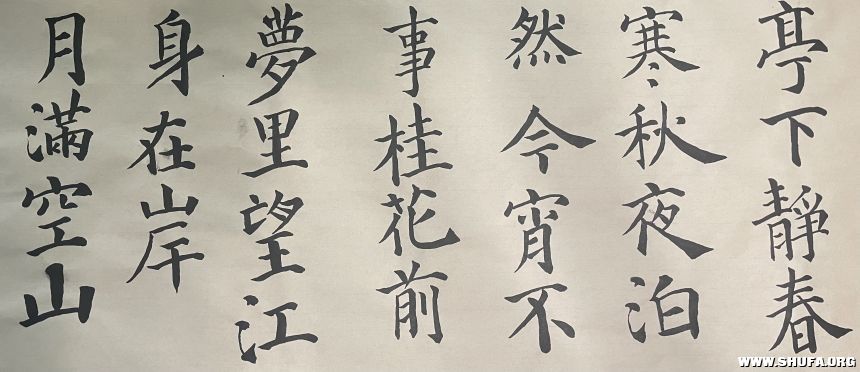 亭下靜春
寒秋夜泊
然今宵不
事桂花前
夢里望江
身在山岸
月滿空山
WWW.SHUFA.ORG